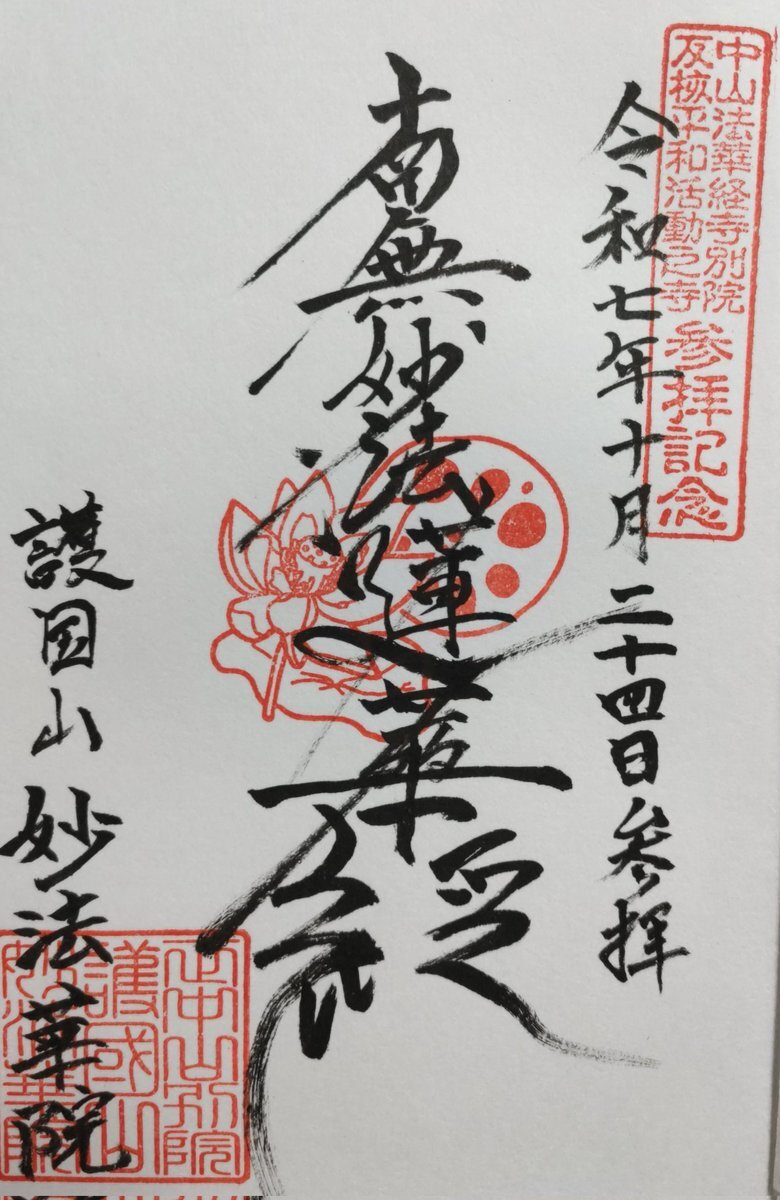 中山法華経寺別院
反核平和活動之寺
参拝記念
令和七年十月二十四日参拝
南無妙法蓮華経
護国山妙法華院
正中山別院
護國山
妙法華院